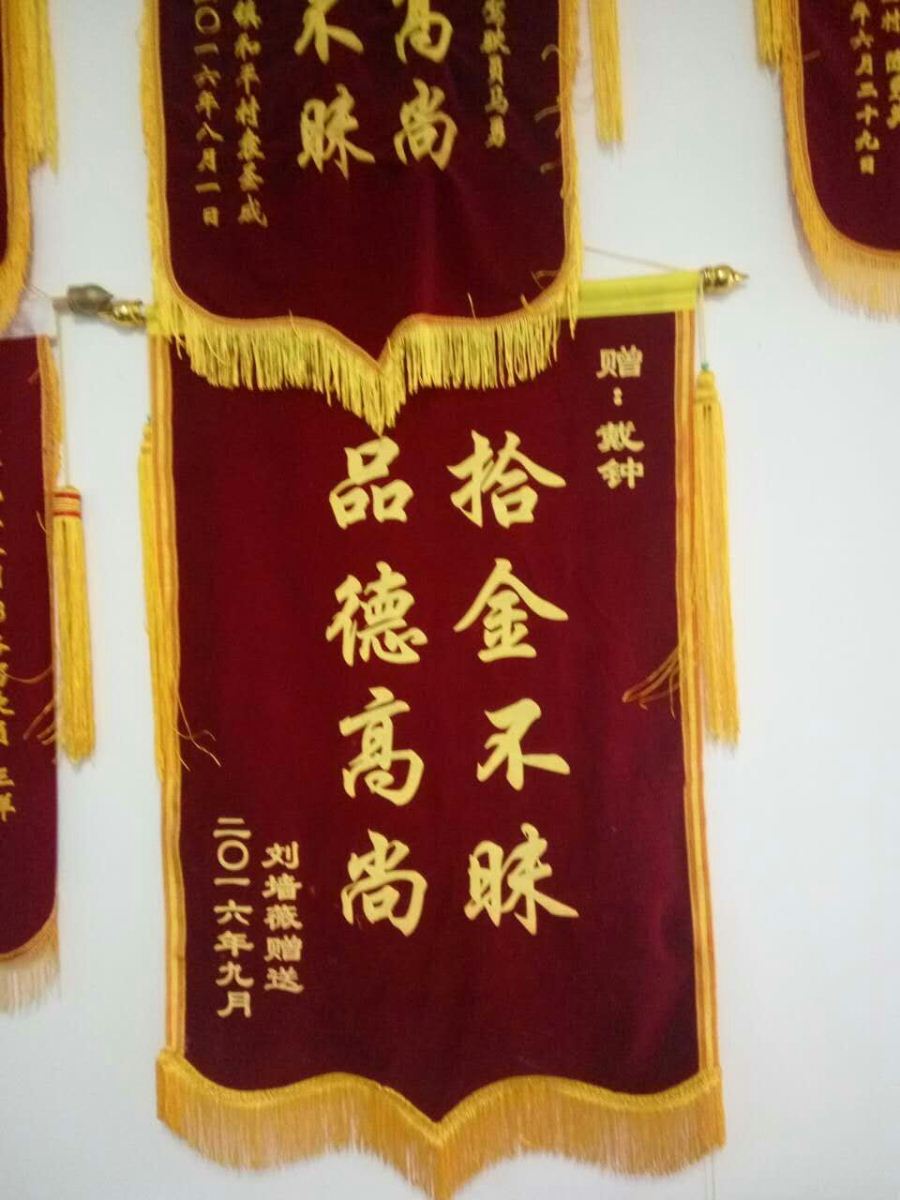 驾驶员马勇
高尚
不昧
镇和平村袁圣成
二〇一六年八月一日
年六月二十九日
赠：戴钟
拾金不昧
品德高尚
刘墙薇赠送
二〇一六年九月